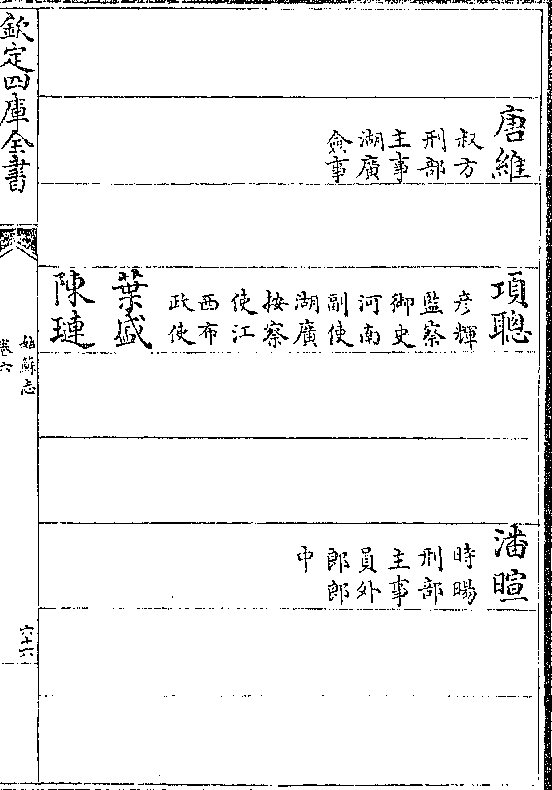 唐維
叔方
刑部
主事
湖廣
僉事
項聰
彦輝
監察
御史
河南
副使
湖廣
按察
使江
西布
政使
葉盛
陳璉
潘暄
時暘
刑部
主事
員外
郎郎
中
欽定四庫全書
姑蘇志
卷六
六十六